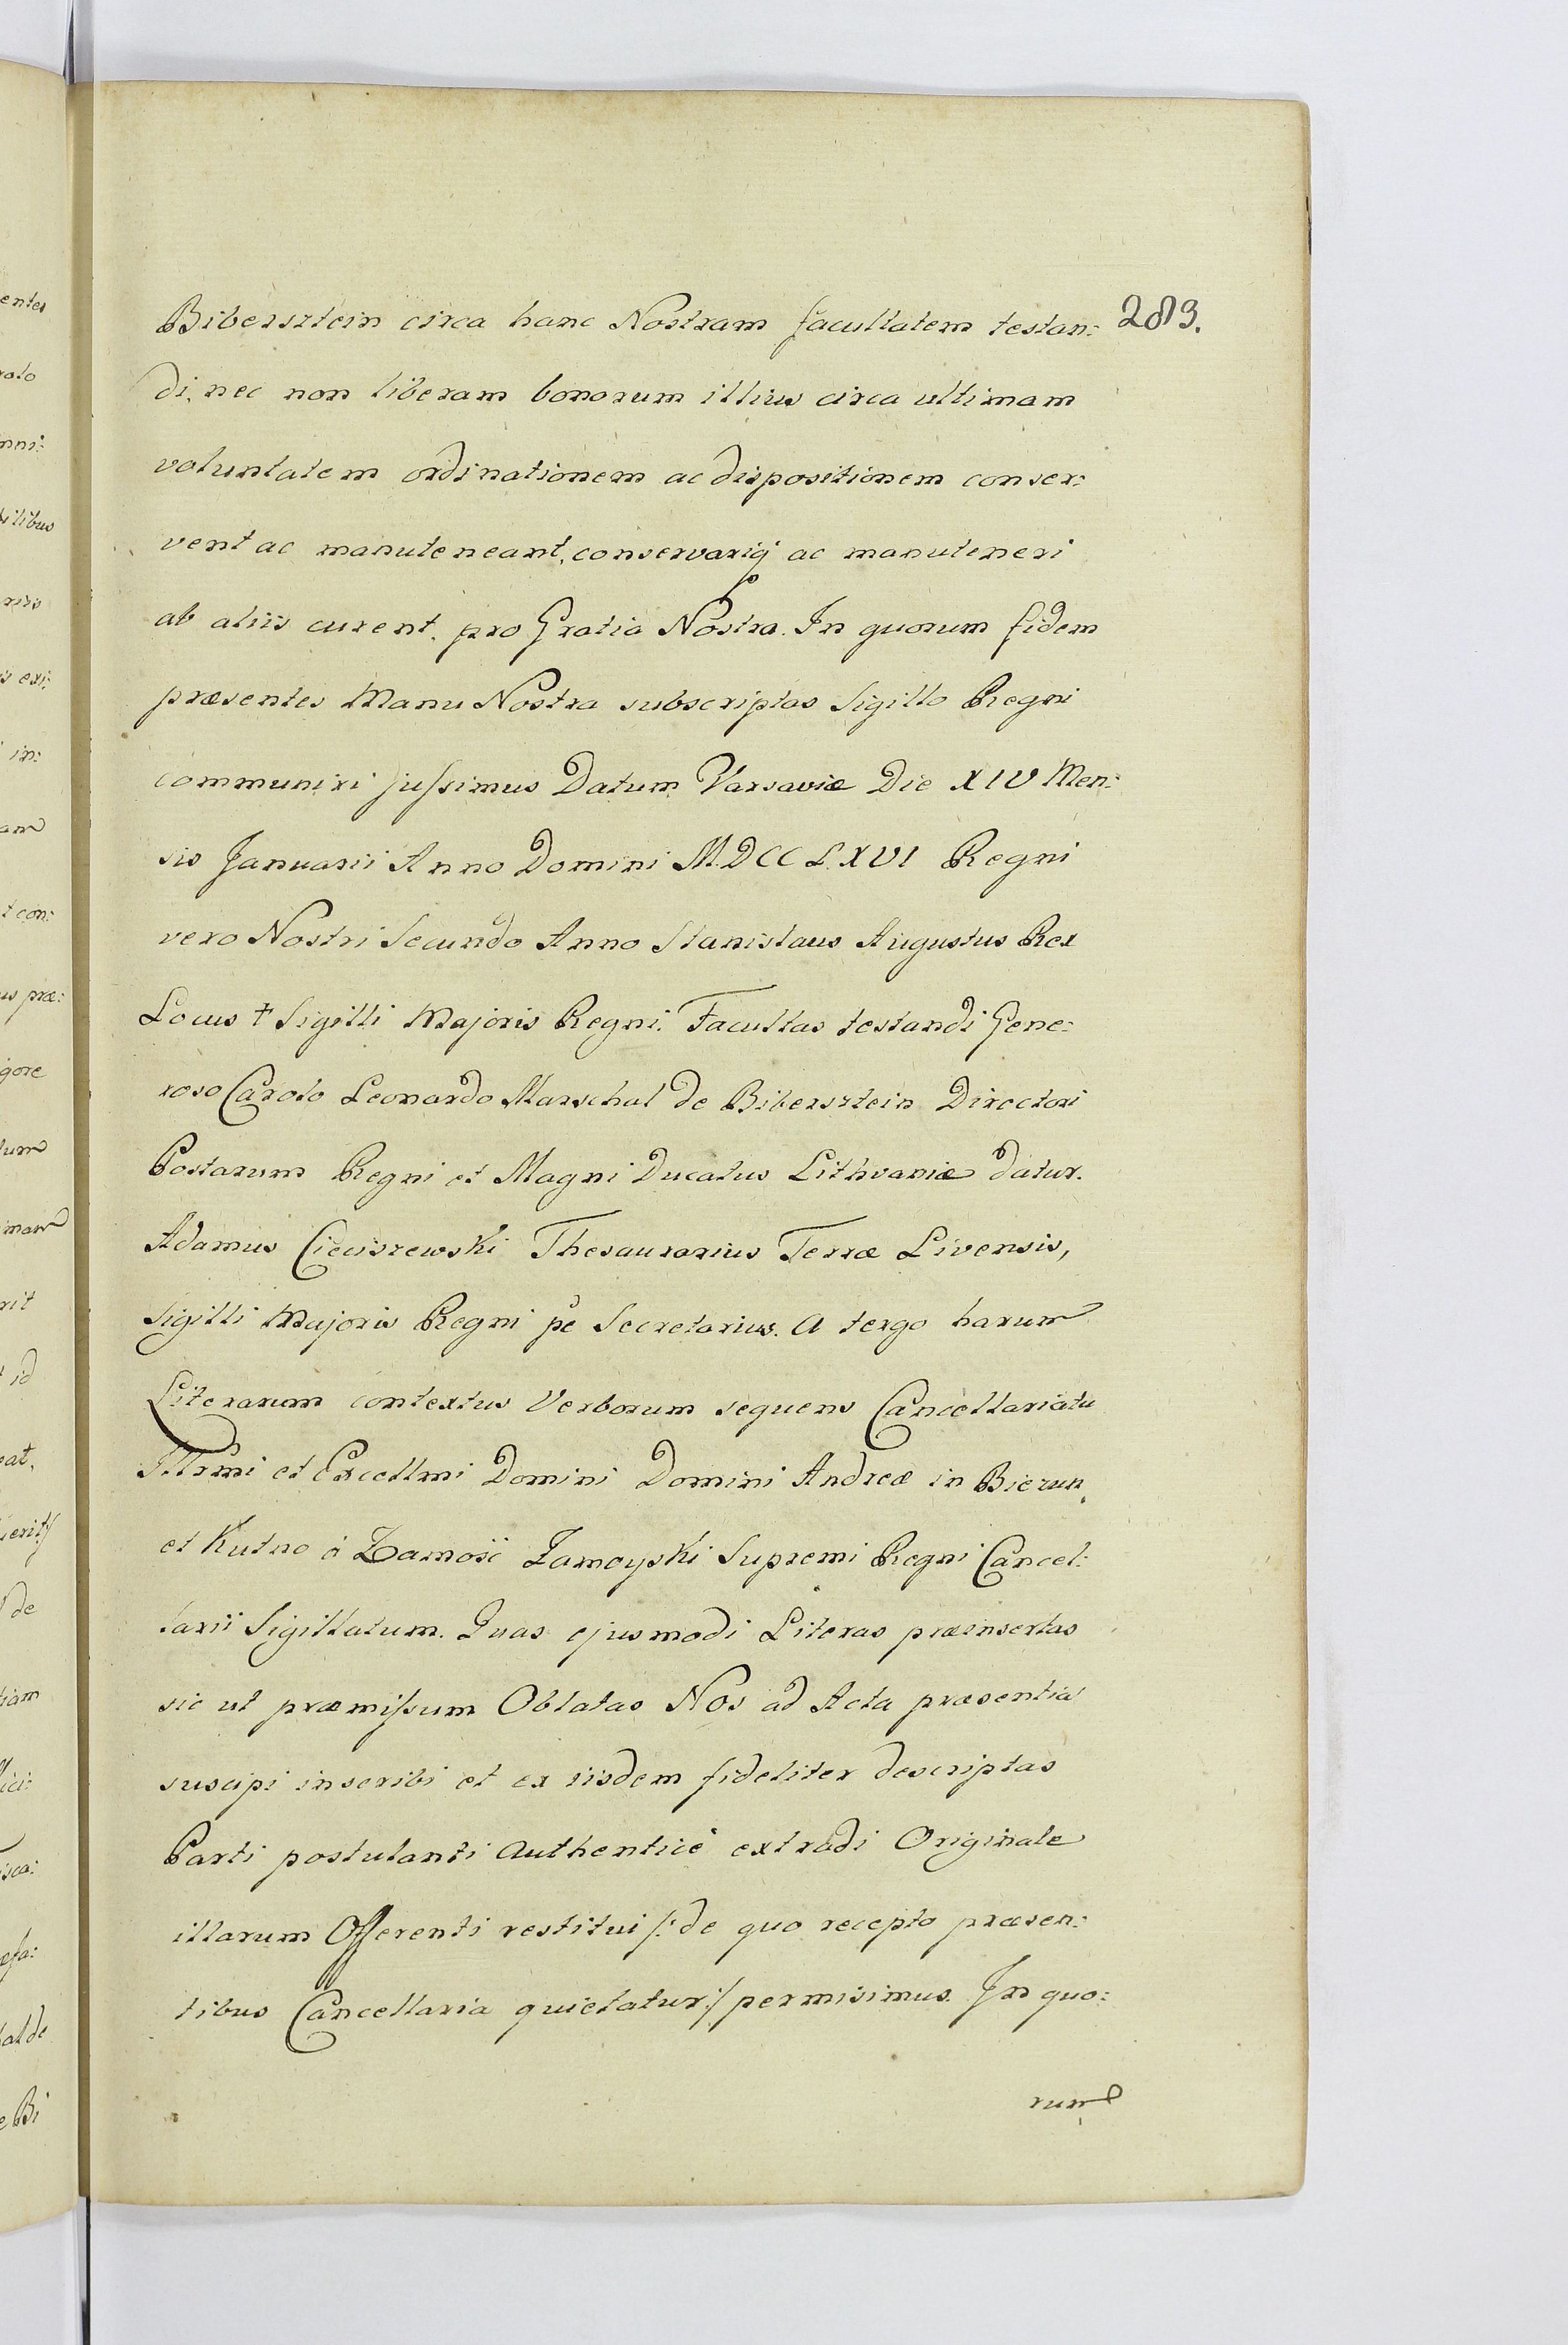 Bibersztein circa hanc Nostram facultatem testan: 289.
di, nec non liberam bonorum illius circa ultimam
voluntatem ordinationem ac dispositionem conser:
vent ac manuteneant, conservariq; ac manuteneri
ab aliis curent, pro Gratia Nostra. In quorum fidem
præsentes Manu Nostra subscriptas Sigillo Regni
communiri jussimus Datum Varsaviæ Die XIV Men:
sis Januarii Anno Domini M.DCCLXVI Regni
vero Nostri Secundo Anno Stanislaus Augustus Rex
Locus † Sigilli Majoris Regni. Facultas testandi Gene:
roso Carolo Leonardo Marschal de Bibersztein Directori
Postarum Regni et Magni Ducatus Lithvaniæ datur.
Adamus Cieciszewski Thesaurarius Terræ Livensis,
Sigilli Majoris Regni Secretarius. A tergo harum
Literarum contextus Verborum sequens Cancellariatu
Illrmi et Excellmi Domini Domini Andreæ in Biezun,
et Kutno à Zamość Zamoyski Supremi Regni Cancel:
larii Sigillatum. Quas ejusmodi Literas præinsertas
sic ut præmissum Oblatas Nos ad Acta præsentia
suscipi inscribi et ex iisdem fideliter descriptas
Parti postulanti Authenticè extradi Originale
illarum Offerenti restitui /: de quo recepto præsen:
tibus Cancellaria quietatur :/ permisimus. In quo:
rum
entes
rolo
nni:
ilibus
in:
am
t con:
us præ:
gore
tum
rit
id
eat,
ierit:/
de
tiam
lici:
isca:
efa:
al de
e Bi